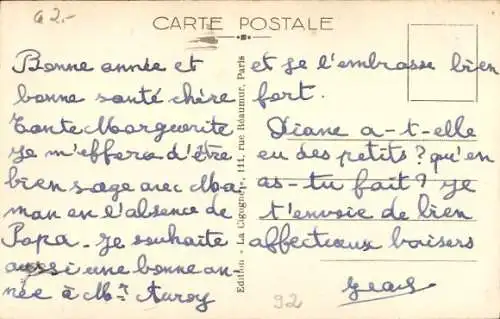 62.-
CARTE POSTALE
Bonne année et
bonne santé chère
Tante Marguerite
Je m'effora d'être
bien sage avec Ma-
man en l'absence de
Papa - Je souhaite
aussi une bonne an-
née à Mr Auroy
Edition "La Cigogne", 111, rue Réaumur, Paris
et je l'embrasse bien
fort.
Diane a-t-elle
eu des petits? qu'en
as-tu fait? Je
t'envoie de bien
affectueux baisers
92